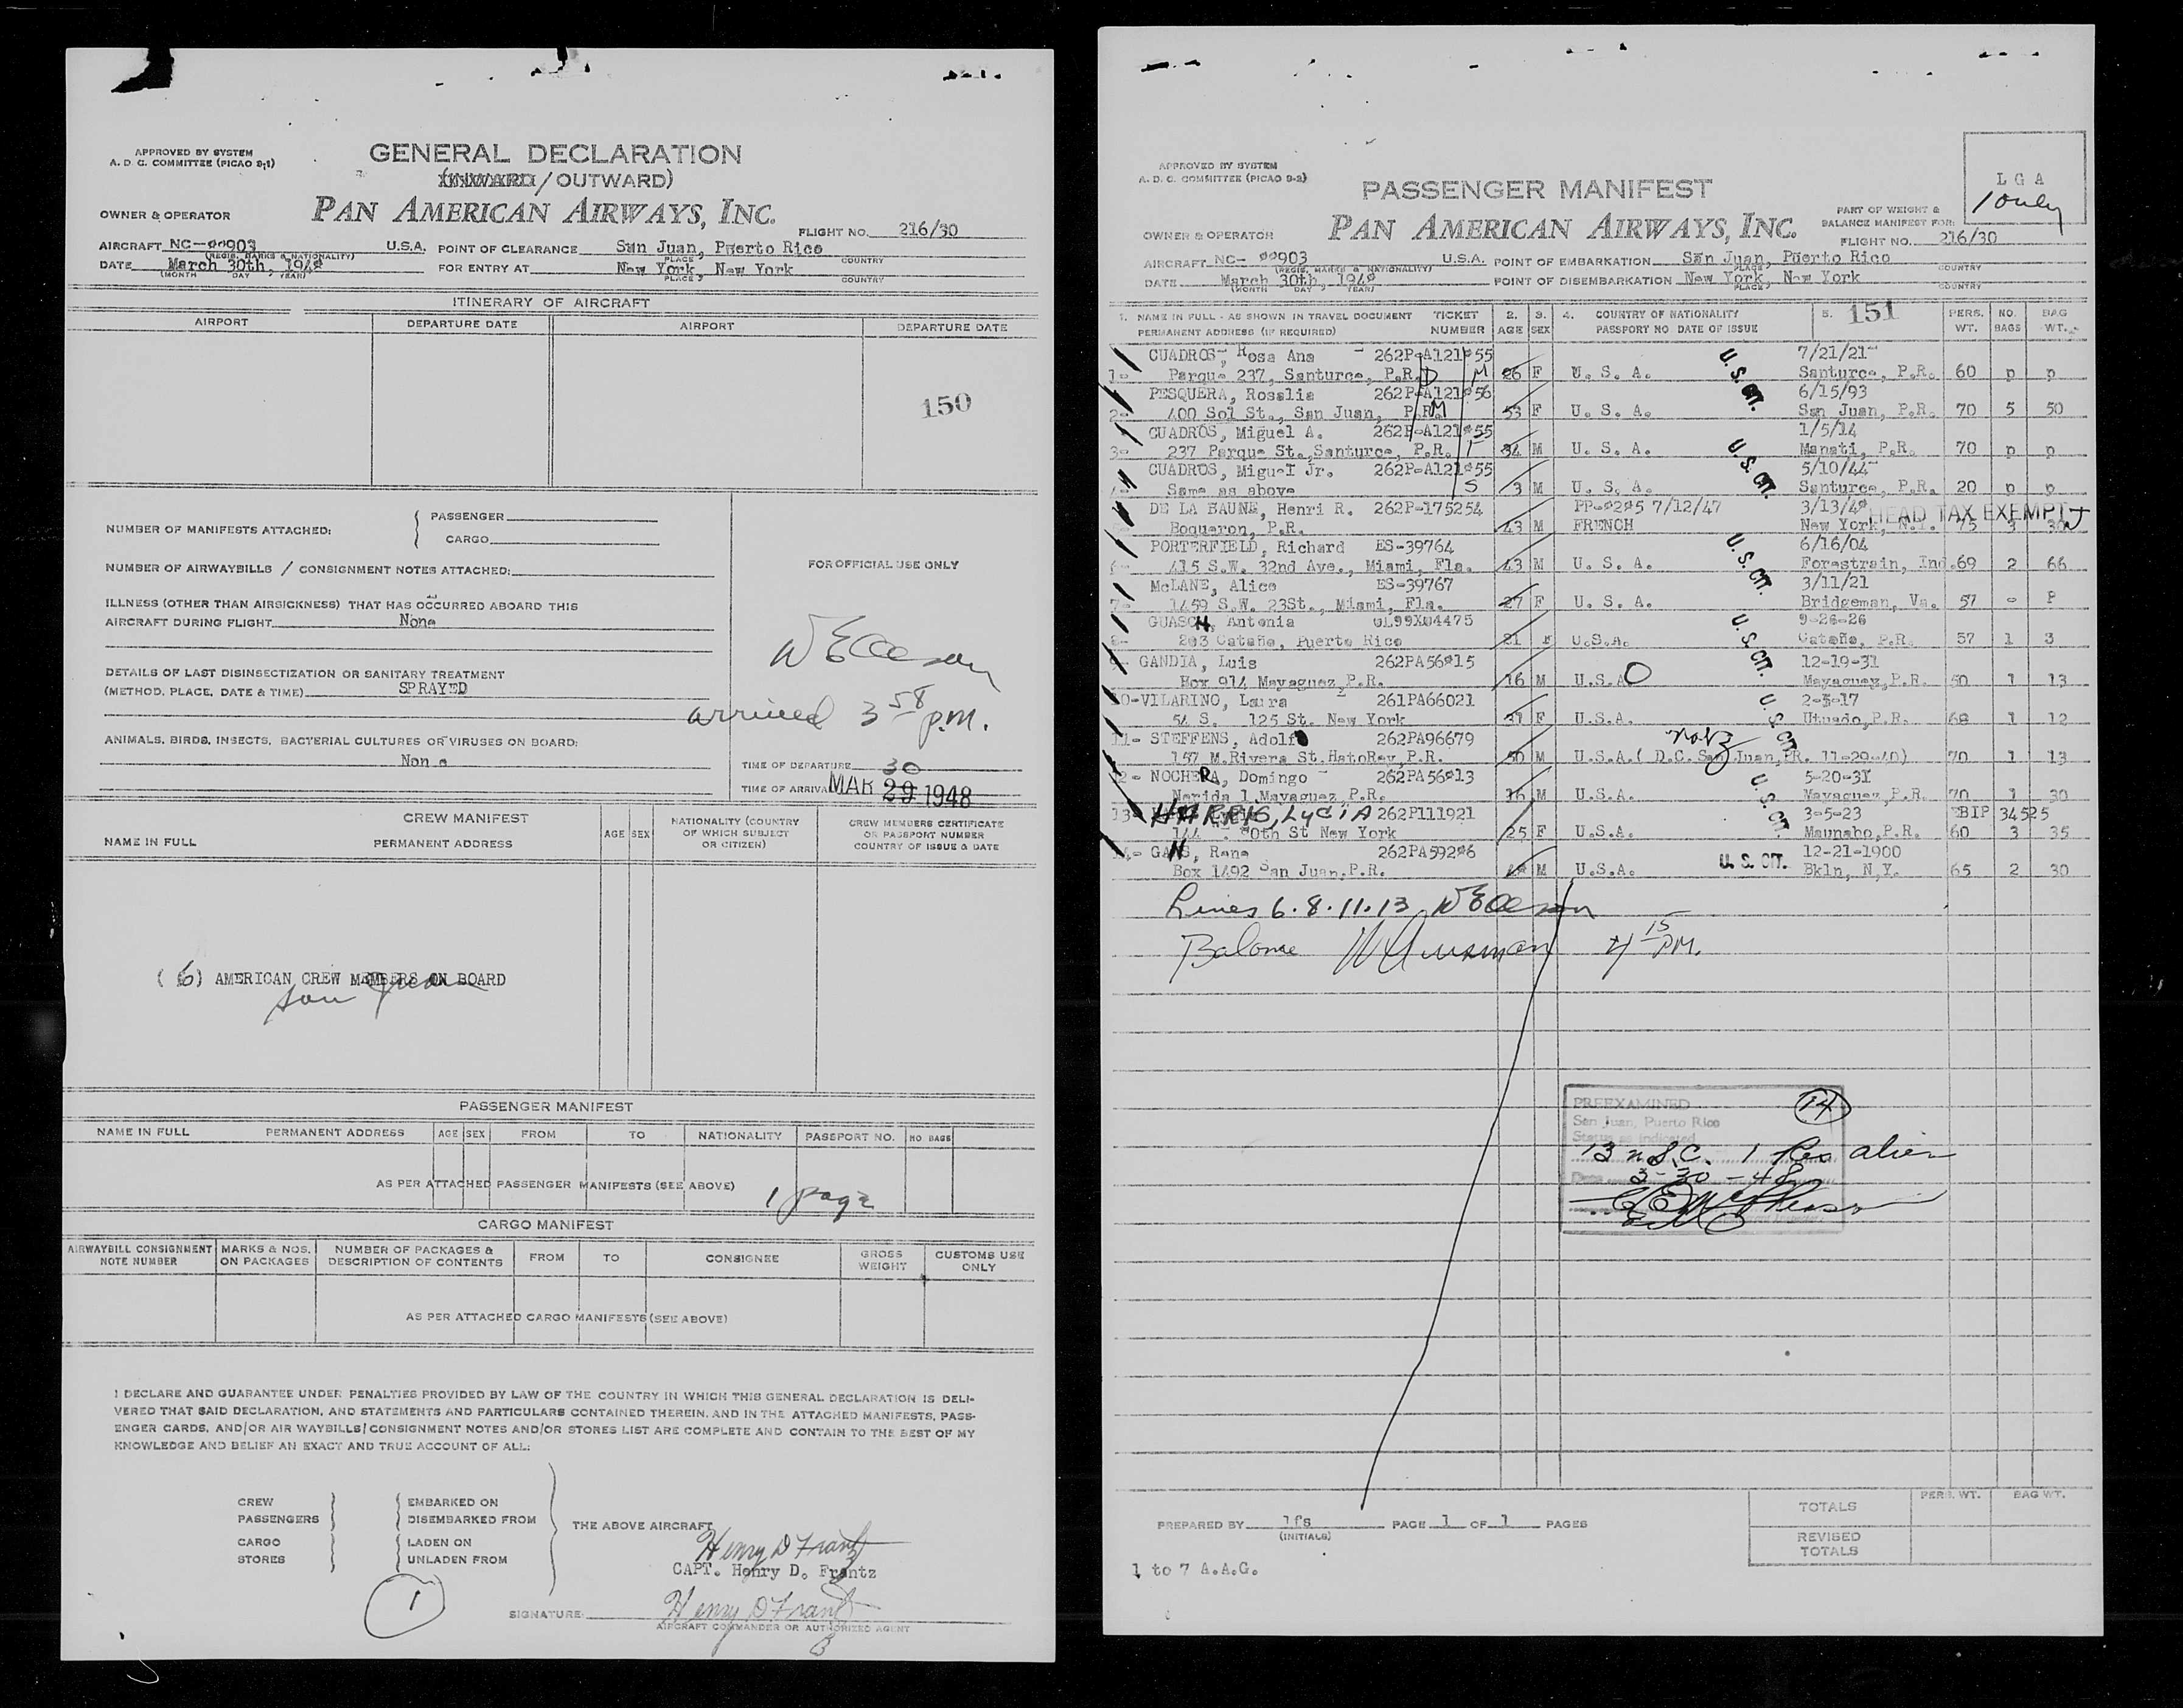 APPROVED BY SYSTEM
A. D. C. COMMITTEE (PICAO 9-1)
GENERAL DECLARATION
(INWARD / OUTWARD)
OWNER & OPERATOR
PAN AMERICAN AIRWAYS, INC.
FLIGHT NO. 216/30
AIRCRAFT NC-88903 U.S.A. POINT OF CLEARANCE San Juan, Puerto Rico
(REGIS. MARKS & NATIONALITY) PLACE COUNTRY
DATE March 30th, 1948 FOR ENTRY AT New York, New York
(MONTH DAY YEAR) PLACE COUNTRY
ITINERARY OF AIRCRAFT
AIRPORT DEPARTURE DATE AIRPORT DEPARTURE DATE
150
NUMBER OF MANIFESTS ATTACHED: PASSENGER
CARGO
NUMBER OF AIRWAYBILLS / CONSIGNMENT NOTES ATTACHED:
FOR OFFICIAL USE ONLY
ILLNESS (OTHER THAN AIRSICKNESS) THAT HAS OCCURRED ABOARD THIS
AIRCRAFT DURING FLIGHT None
DETAILS OF LAST DISINSECTIZATION OR SANITARY TREATMENT
(METHOD, PLACE, DATE & TIME) SPRAYED
arrived 3 58 p.m.
ANIMALS, BIRDS, INSECTS, BACTERIAL CULTURES OR VIRUSES ON BOARD:
None
TIME OF DEPARTURE
30
TIME OF ARRIVAL MAR 29 1948
CREW MANIFEST
NAME IN FULL PERMANENT ADDRESS AGE SEX NATIONALITY (COUNTRY OF WHICH SUBJECT OR CITIZEN) CREW MEMBERS CERTIFICATE OR PASSPORT NUMBER COUNTRY OF ISSUE & DATE
(6) AMERICAN CREW MEMBERS ON BOARD
San Juan
PASSENGER MANIFEST
NAME IN FULL PERMANENT ADDRESS AGE SEX FROM TO NATIONALITY PASSPORT NO. NO BAGS
AS PER ATTACHED PASSENGER MANIFESTS (SEE ABOVE) 1 page
CARGO MANIFEST
AIRWAYBILL CONSIGNMENT NOTE NUMBER MARKS & NOS. ON PACKAGES NUMBER OF PACKAGES & DESCRIPTION OF CONTENTS FROM TO CONSIGNEE GROSS WEIGHT CUSTOMS USE ONLY
AS PER ATTACHED CARGO MANIFESTS (SEE ABOVE)
I DECLARE AND GUARANTEE UNDER PENALTIES PROVIDED BY LAW OF THE COUNTRY IN WHICH THIS GENERAL DECLARATION IS DELI-
VERED THAT SAID DECLARATION, AND STATEMENTS AND PARTICULARS CONTAINED THEREIN, AND IN THE ATTACHED MANIFESTS, PASS-
ENGER CARDS, AND/OR AIR WAYBILLS/CONSIGNMENT NOTES AND/OR STORES LIST ARE COMPLETE AND CONTAIN TO THE BEST OF MY
KNOWLEDGE AND BELIEF AN EXACT AND TRUE ACCOUNT OF ALL:
CREW EMBARKED ON
PASSENGERS DISEMBARKED FROM
THE ABOVE AIRCRAFT
CARGO LADEN ON
STORES UNLADEN FROM
Henry D Frantz
CAPT. Henry D. Frantz
1
SIGNATURE: Henry D Frantz
AIRCRAFT COMMANDER OR AUTHORIZED AGENT
APPROVED BY SYSTEM
A. D. C. COMMITTEE (PICAO 9-2)
PASSENGER MANIFEST
L G A
1 only
PART OF WEIGHT &
BALANCE MANIFEST FOR:
OWNER & OPERATOR
PAN AMERICAN AIRWAYS, INC.
FLIGHT NO. 216/30
AIRCRAFT NC- 88903 U.S.A. POINT OF EMBARKATION San Juan, Puerto Rico
(REGIS. MARKS & NATIONALITY) PLACE COUNTRY
DATE March 30th, 1948 POINT OF DISEMBARKATION New York, New York
(MONTH DAY YEAR) PLACE COUNTRY
1. NAME IN FULL - AS SHOWN IN TRAVEL DOCUMENT TICKET 2. 3. 4. COUNTRY OF NATIONALITY 5. 151 PERS. NO. BAG
PERMANENT ADDRESS (IF REQUIRED) NUMBER AGE SEX PASSPORT NO DATE OF ISSUE WT. BAGS WT.
CUADROS, Rosa Ana 262P-A121855 7/21/21
1- Parque 237, Santurce, P.R. 26 F U. S. A. U.S. CIT. Santurce, P.R. 60 p p
PESQUERA, Rosalia 262P-A121856 6/15/93
2- 400 Sol St., San Juan, P.R. 53 F U. S. A. San Juan, P.R. 70 5 50
CUADROS, Miguel A. 262P-A121855 1/5/14
3- 237 Parque St., Santurce, P.R. 34 M U. S. A. U.S. CIT. Manati, P.R. 70 p p
CUADROS, Miguel Jr. 262P-A121855 5/10/44
4- Same as above 3 M U. S. A. Santurce, P.R. 20 p p
DE LA BAUME, Henri R. 262P-175254 PP-8285 7/12/47 3/13/48 HEAD TAX EXEMPT
Boqueron, P.R. 43 M FRENCH New York, N.Y. 75 3 30
PORTERFIELD, Richard ES-39764 6/16/04
6- 415 S.W. 32nd Ave., Miami, Fla. 43 M U. S. A. U.S. CIT. Forestrain, Ind. 69 2 66
McLANE, Alice ES-39767 3/11/21
7- 1459 S.W. 23St., Miami, Fla. 27 F U. S. A. Bridgeman, Va. 57 - P
GUASCH, Antonia OL99X04475 9-26-26
8- 203 Cataño, Puerto Rico 21 F U.S.A. U.S. CIT. Cataño, P.R. 57 1 3
9- GANDIA, Luis 262PA56815 12-19-31
Box 914 Mayaguez, P.R. 16 M U.S.A. Mayaguez, P.R. 50 1 13
10-VILARINO, Laura 261PA66021 2-3-17
54 S. 125 St. New York 31 F U.S.A. U.S. CIT. Utuado, P.R. 68 1 12
11- STEFFENS, Adolf 262PA96679 natz
157 M.Rivera St. HatoRey, P.R. 50 M U.S.A.( D.C. San Juan, PR. 11-29-40) 70 1 13
12- NOCHERA, Domingo 262PA56813 5-20-31
Nerida 1 Mayaguez, P.R. 16 M U.S.A. U.S. CIT. Mayaguez, P.R. 70 1 30
13- HARRIS, LyCiA 262P111921 3-5-23 EBIP 34525
25 F U.S.A. Maunabo, P.R. 60 3 35
14- GANS, Rene 262PA59286 12-21-1900
Box 1492 San Juan, P.R. M U.S.A. U. S. CIT. Bkln, N.Y. 65 2 30
Lines 6.8.11.13
4 15 PM.
PREEXAMINED 14
San Juan, Puerto Rico
Status as indicated
13 U.S.C. 1 Res alien
Date 3-30-48
TOTALS PERS. WT. BAG WT.
PREPARED BY lfs PAGE 1 OF 1 PAGES
(INITIALS)
REVISED
TOTALS
1 to 7 A.A.G.